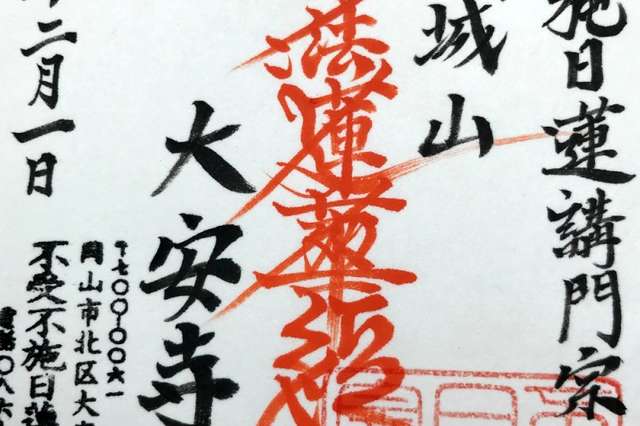 施日蓮講門宗
城山
法蓮華経
大安寺
〒七〇〇-〇〇六一
岡山市北区大
不受不施日蓮
電話〇八六
二月一日